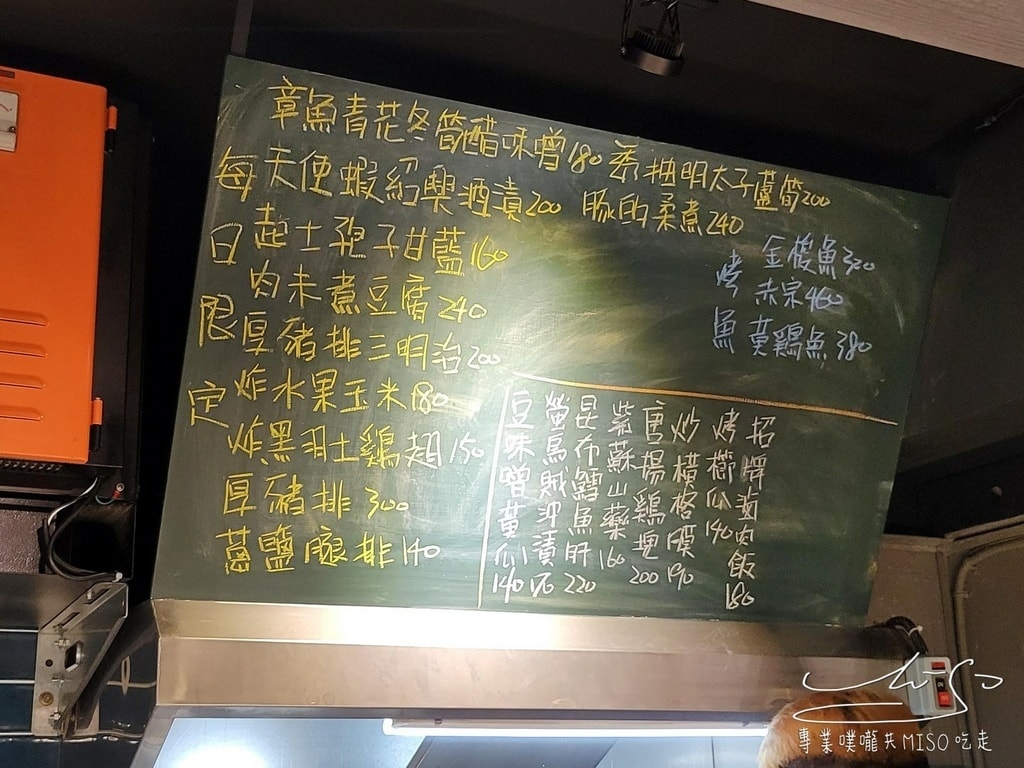 章魚青花冬筍醋味噌180
香柚明太子蘆筍200
每日限定
天使蝦紹興酒漬200
豚的柔煮240
起士孢子甘藍160
肉末煮豆腐240
厚豬排三明治200
炸水果玉米180
炸黑羽土鷄翅150
厚豬排300
薑鹽腿排140
烤魚
金梭魚320
赤宗460
黃鷄魚380
招牌滷肉飯180
烤櫛瓜140
炒橫格膜190
唐揚鷄塊200
紫蘇山藥160
昆布鱈魚肝220
螢烏賊沖漬
豆味噌黃瓜140
專業噗嚨共MISO吃走